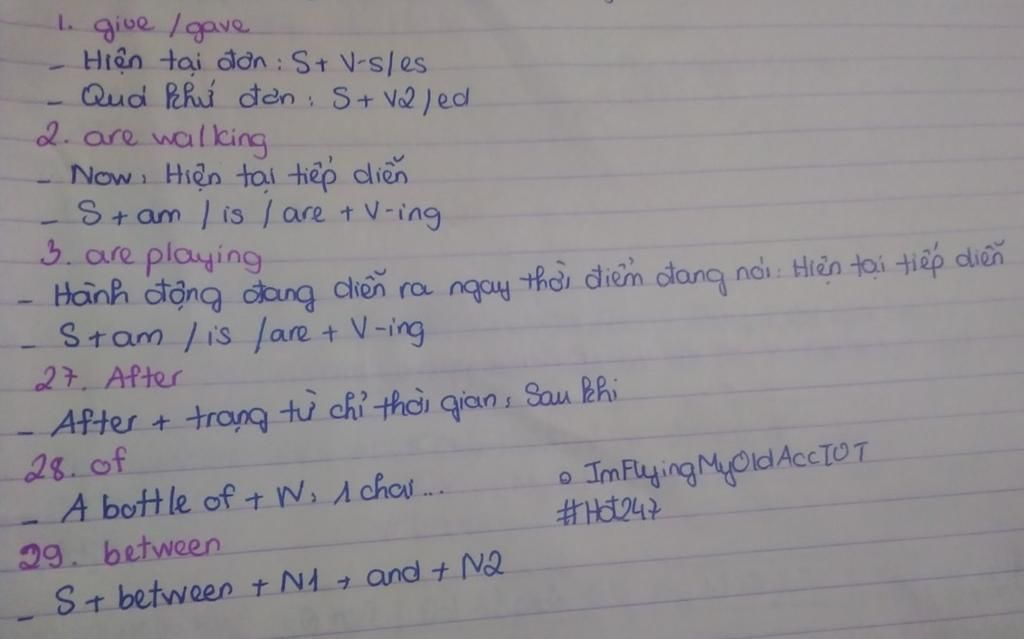 1. give / gave
- Hiện tại đơn: S + V-s/es
- Quá khứ đơn: S + V2/ed
2. are walking
- Now: Hiện tại tiếp diễn
- S + am / is / are + V-ing
3. are playing
- Hành động đang diễn ra ngay thời điểm đang nói: Hiện tại tiếp diễn
- S + am / is / are + V-ing
27. After
- After + trạng từ chỉ thời gian: Sau khi
28. of
- A bottle of + N: 1 chai...
o ImFlyingMyOldAccIOT
#Hot247
29. between
- S + between + N1 + and + N2